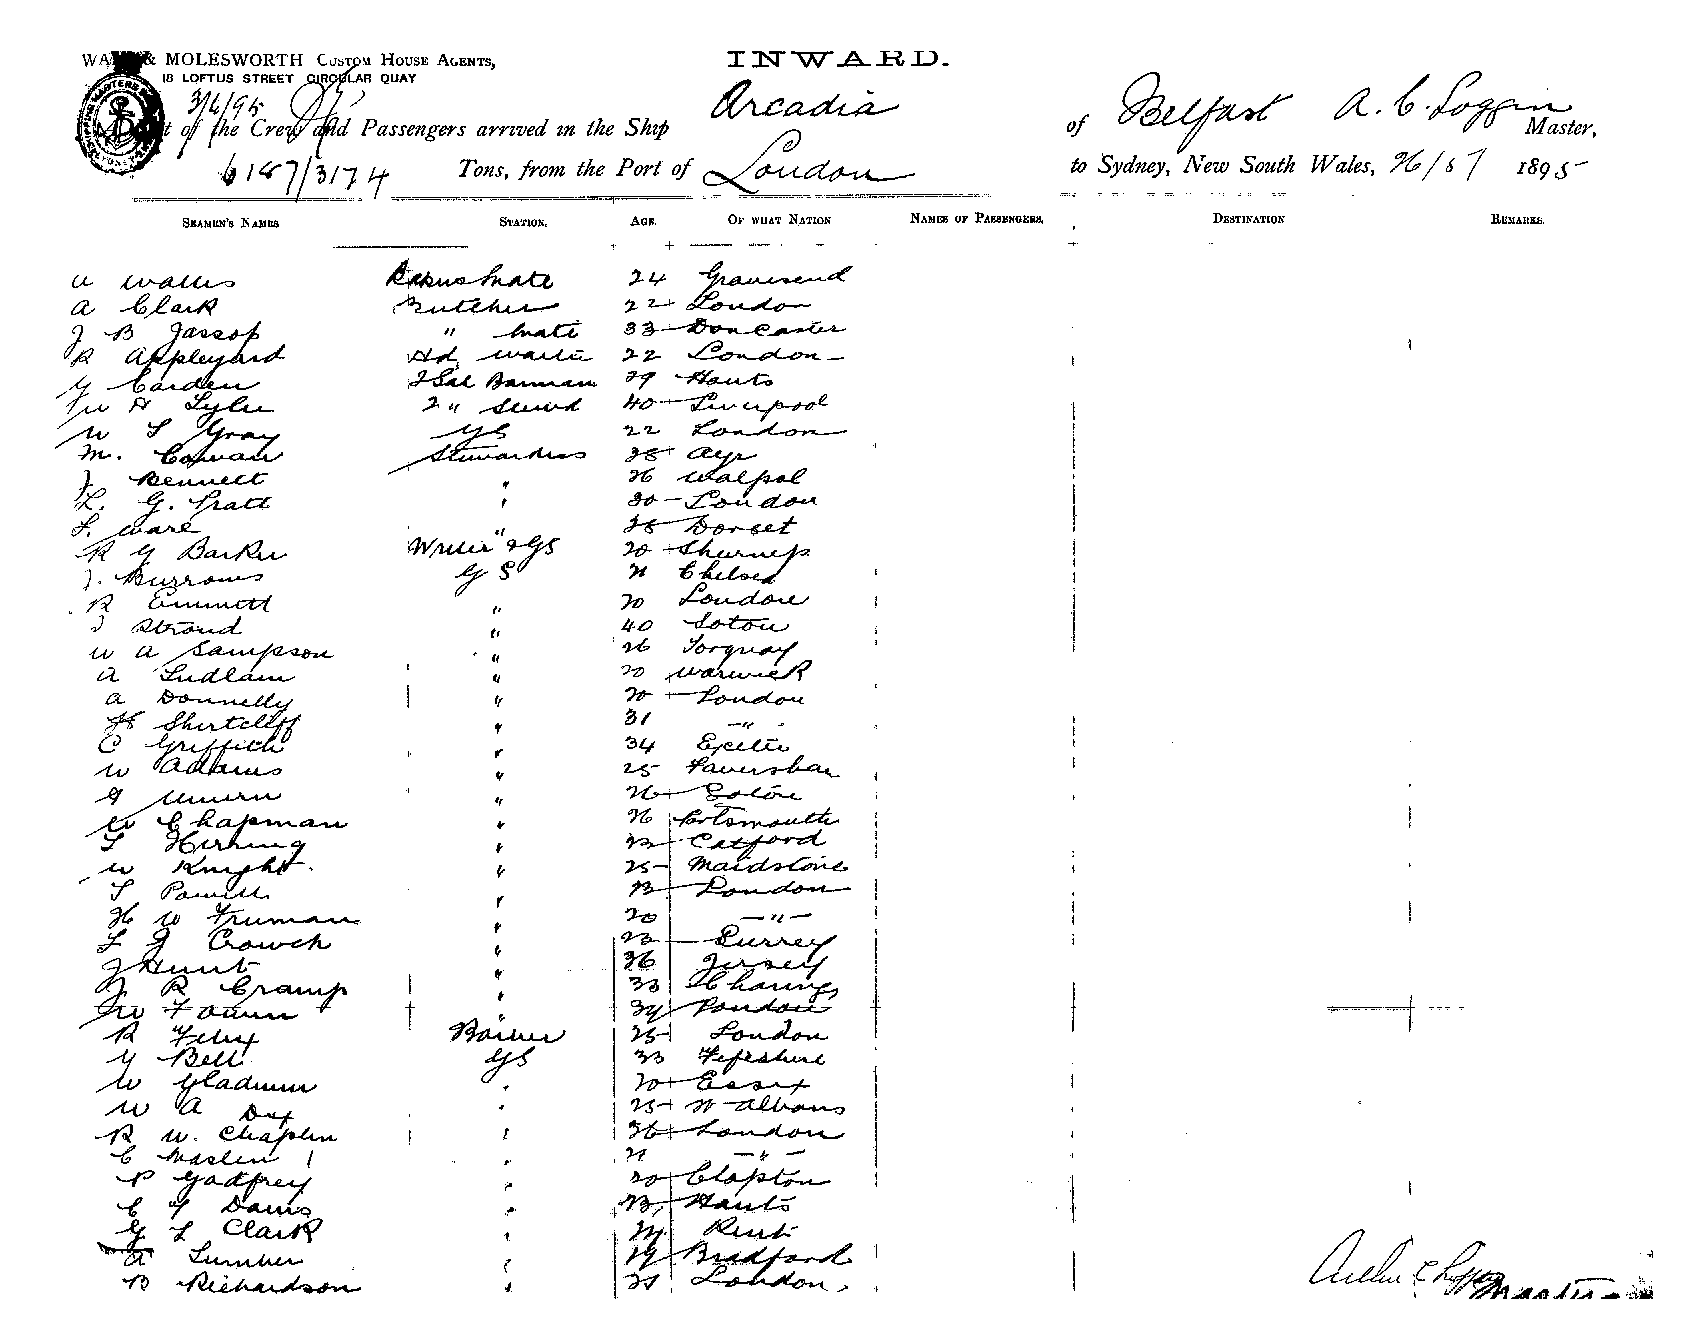 & MOLESWORTH Custom House Agents,
18 LOFTUS STREET CIRCULAR QUAY
INWARD.
3/6/95
of the Crew and Passengers arrived in the Ship Arcadia of Belfast A. C. Loggin Master,
6187/3174 Tons, from the Port of London to Sydney, New South Wales, 1895
Seamen's Names Station. Age. Of what Nation Names of Passengers. Destination Remarks.
a Wallis Mate 24 Gravesend
a Clark Butcher 22 London
J B Jassop " Mate 33 Doncaster
R Appleyard Hd Waiter 22 London
G Carden 2 Sal Barman 29 Hants
W H Tyler 2 " Stewd 40 Liverpool
W T Gray GS 22 London
M. Cowan Stewardess 38 Ayr
J Bennett " 26 Walpol
L. G. Pratt " 30 London
F. Ware " 38 Dorset
R G Barker Writer & GS 20 Sheerness
J. Burrows G S 21 Chelsea
R Emmett " 20 London
J Stroud " 40 Soton
W A Sampson " 26 Torquay
A Ludlam " 20 Warwick
A Donnelly " 20 London
H Shirtcliff " 31 "
C Griffith " 34 Exeter
W Adams " 25 Faversham
G " 26 Soton
W Chapman " 26 Portsmouth
T Herring " 22 Catford
W Knight " 25 Maidstone
T Powell " 23 London
H W Truman " 20 "
F J Crowch " 23 Surrey
J Hunt " 36 Jersey
J R Cramp " 33 Charing
W " London
R Barber 25 London
G Bell GS 33 Fifeshire
W " 20 Essex
W A Day " 25 St Albans
R W. Chaplin " 26 London
C Maslin " 21 "
P Godfrey " 20 Clapton
C G Davis " 23 Hants
G F Clark " 24 Kent
A Lumber " 29 Bradford
B Richardson " London
Master